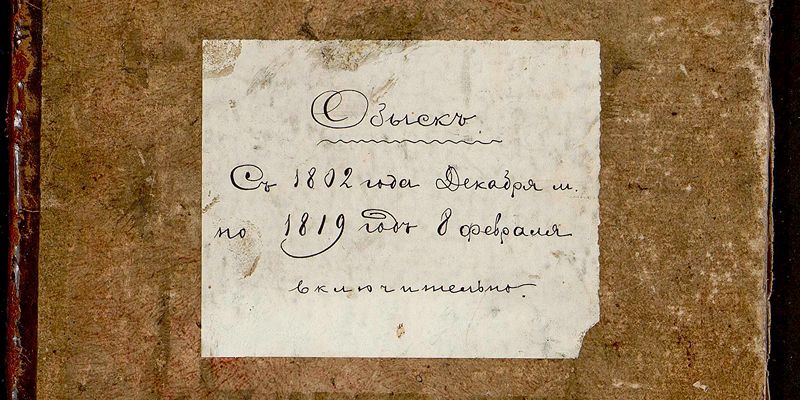 Обыскъ
Съ 1802 года Декабря м.
по 1819 годъ 8 февраля
включительно.